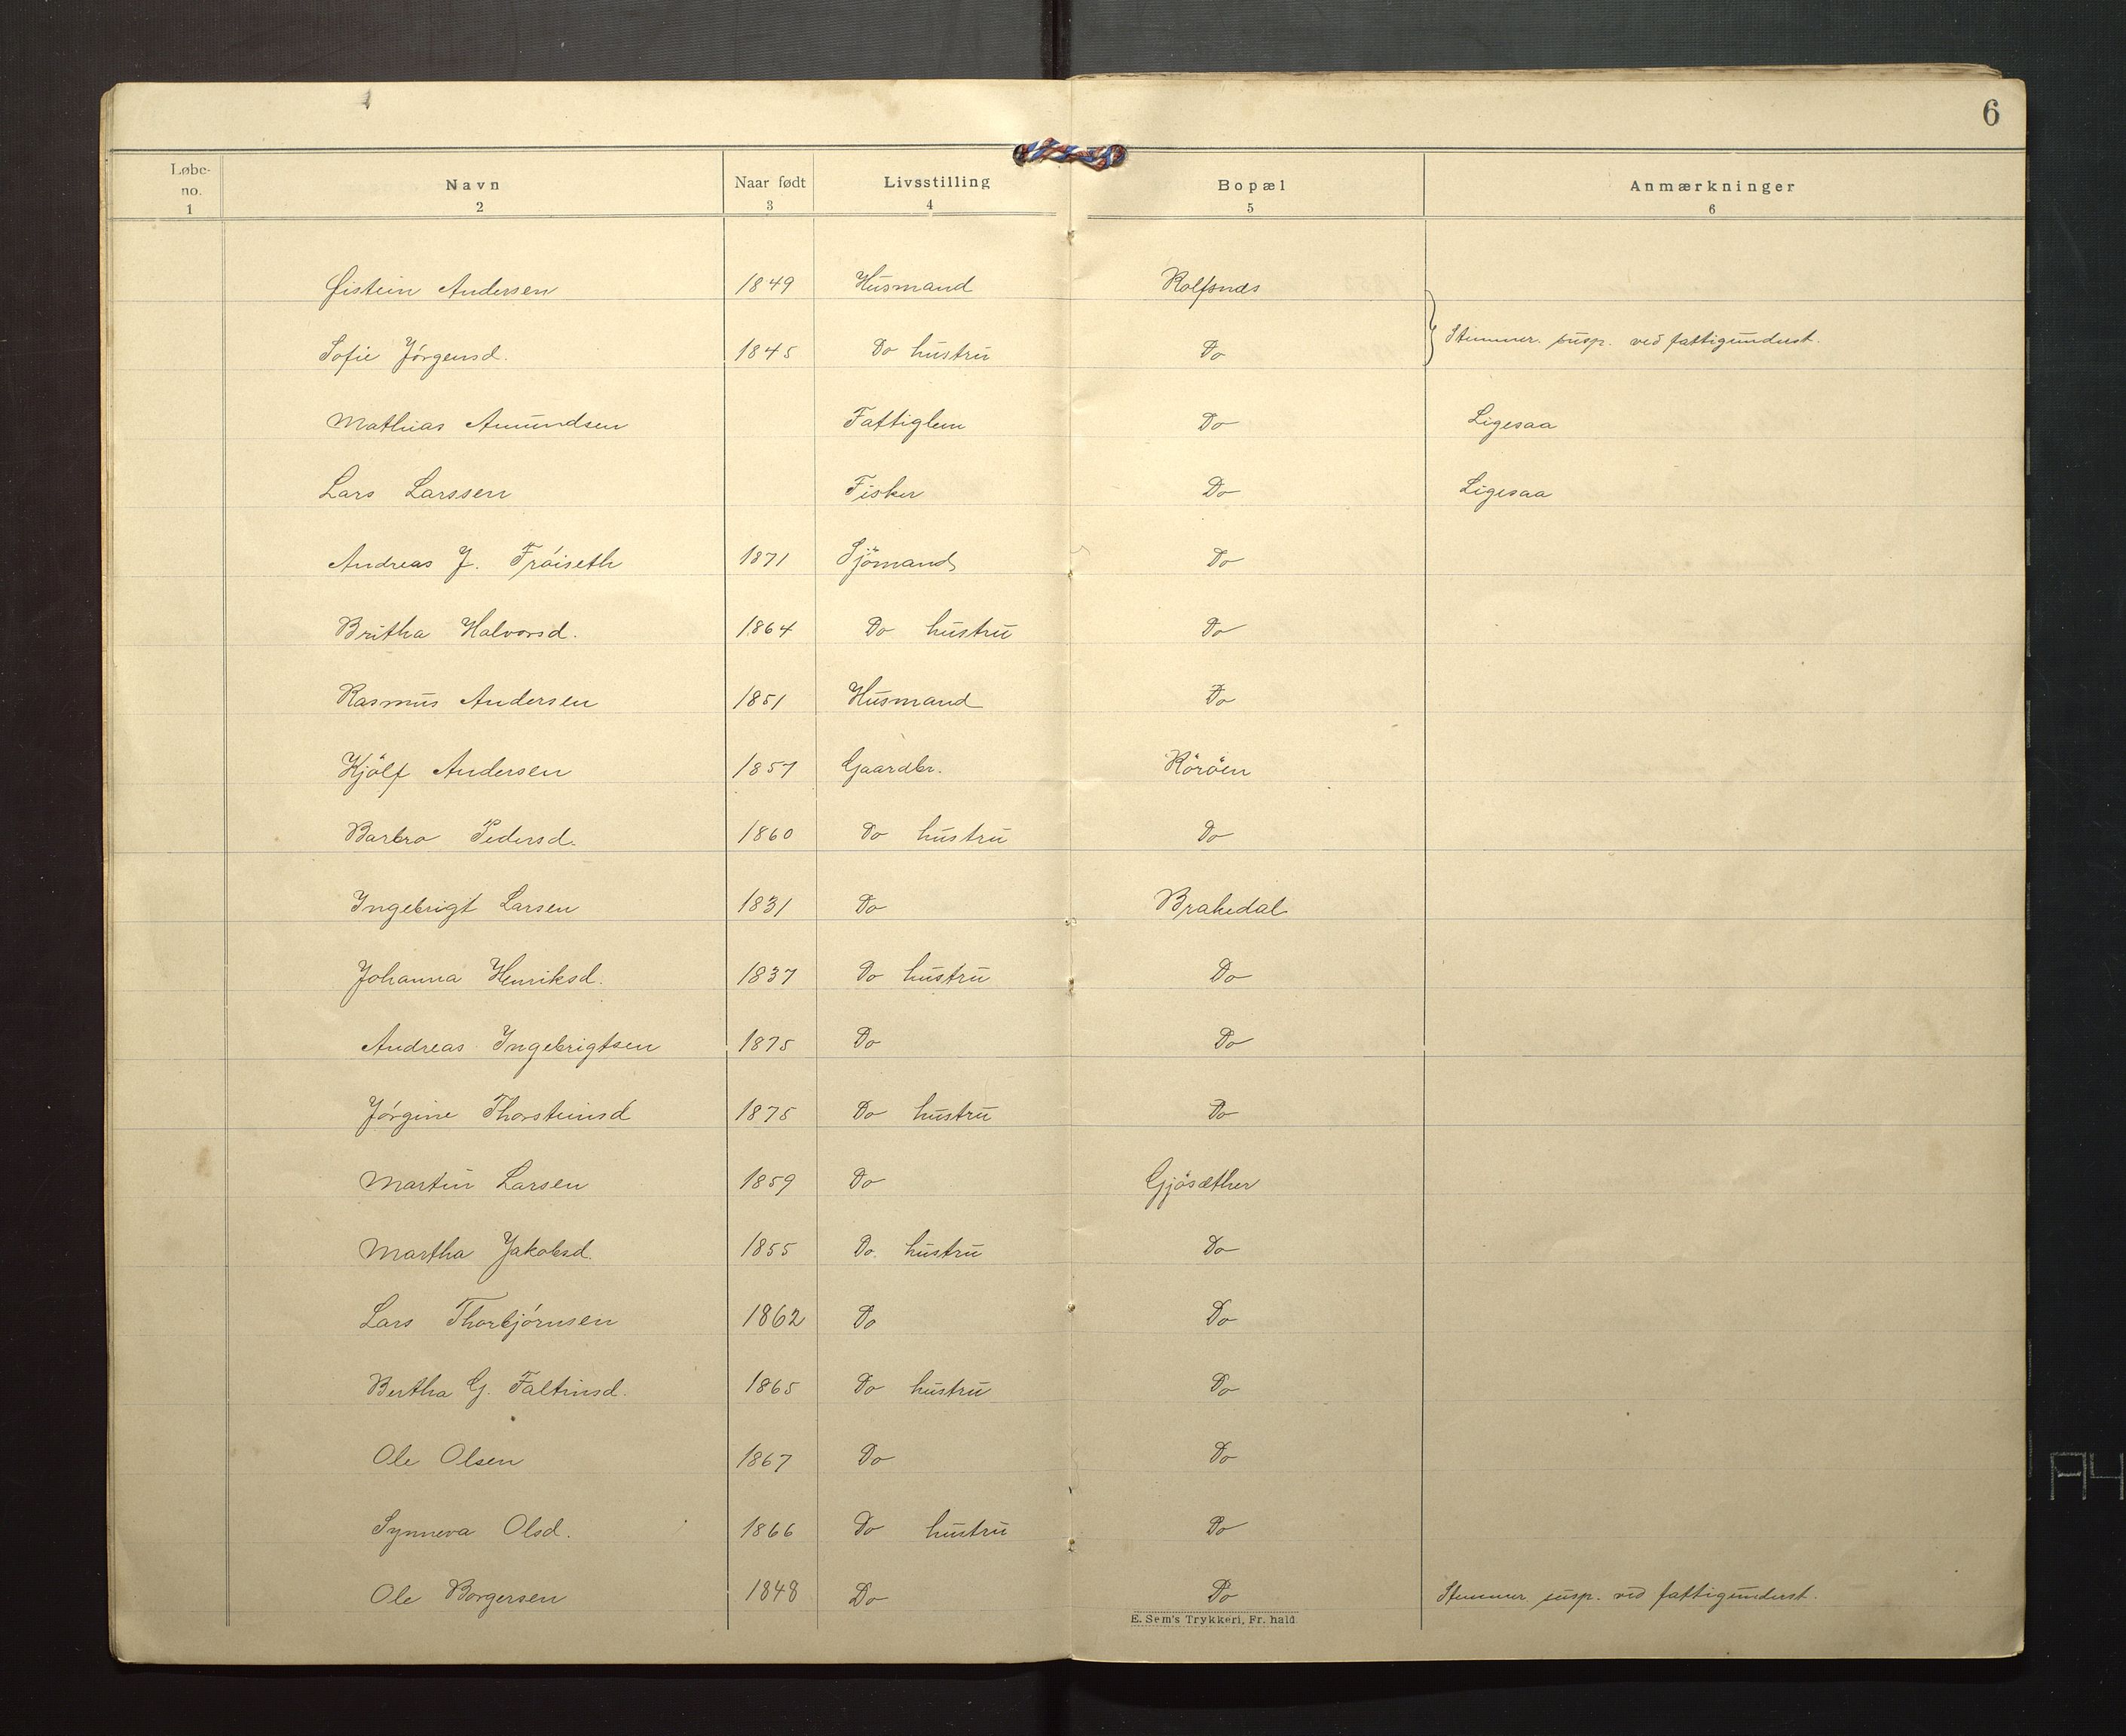 6
Løbe-
no. Navn Naar født Livsstilling Bopæl Anmærkninger
1 2 3 4 5 6
Øistein Andersen 1849 Husmand Rolfsnæs
Sofie Jørgensd. 1845 Do hustru Do Stemmer. susp. ved fattigunderst.
Mathias Amundsen Fattiglem Do Ligesaa
Lars Larssen Fisker Do Ligesaa
Andreas J. Frøiseth 1871 Sjömand Do
Britha Halvorsd. 1864 Do hustru Do
Rasmus Andersen 1851 Husmand Do
Kjölf Andersen 1857 Gaardbr. Köröen
Barbro Pedersd. 1860 Do hustru Do
Ingebrigt Larsen 1831 Do Brakedal
Johanna Henriksd. 1837 Do hustru Do
Andreas Ingebrigtsen 1875 Do Do
Jørgine Thorsteinsd 1875 Do hustru Do
Martin Larsen 1859 Do Gjøsæther
Martha Jakobsd. 1855 Do. hustru Do
Lars Thorbjørnsen 1862 Do Do
Bertha G. Faltinsd. 1865 Do hustru Do
Ole Olsen 1867 Do Do
Synneva Olsd. 1866 Do hustru Do
Ole Borgersen 1848 Do Do Stemmer. susp. ved fattigunderst.
E. Sem's Trykkeri, Fr. hald
A4